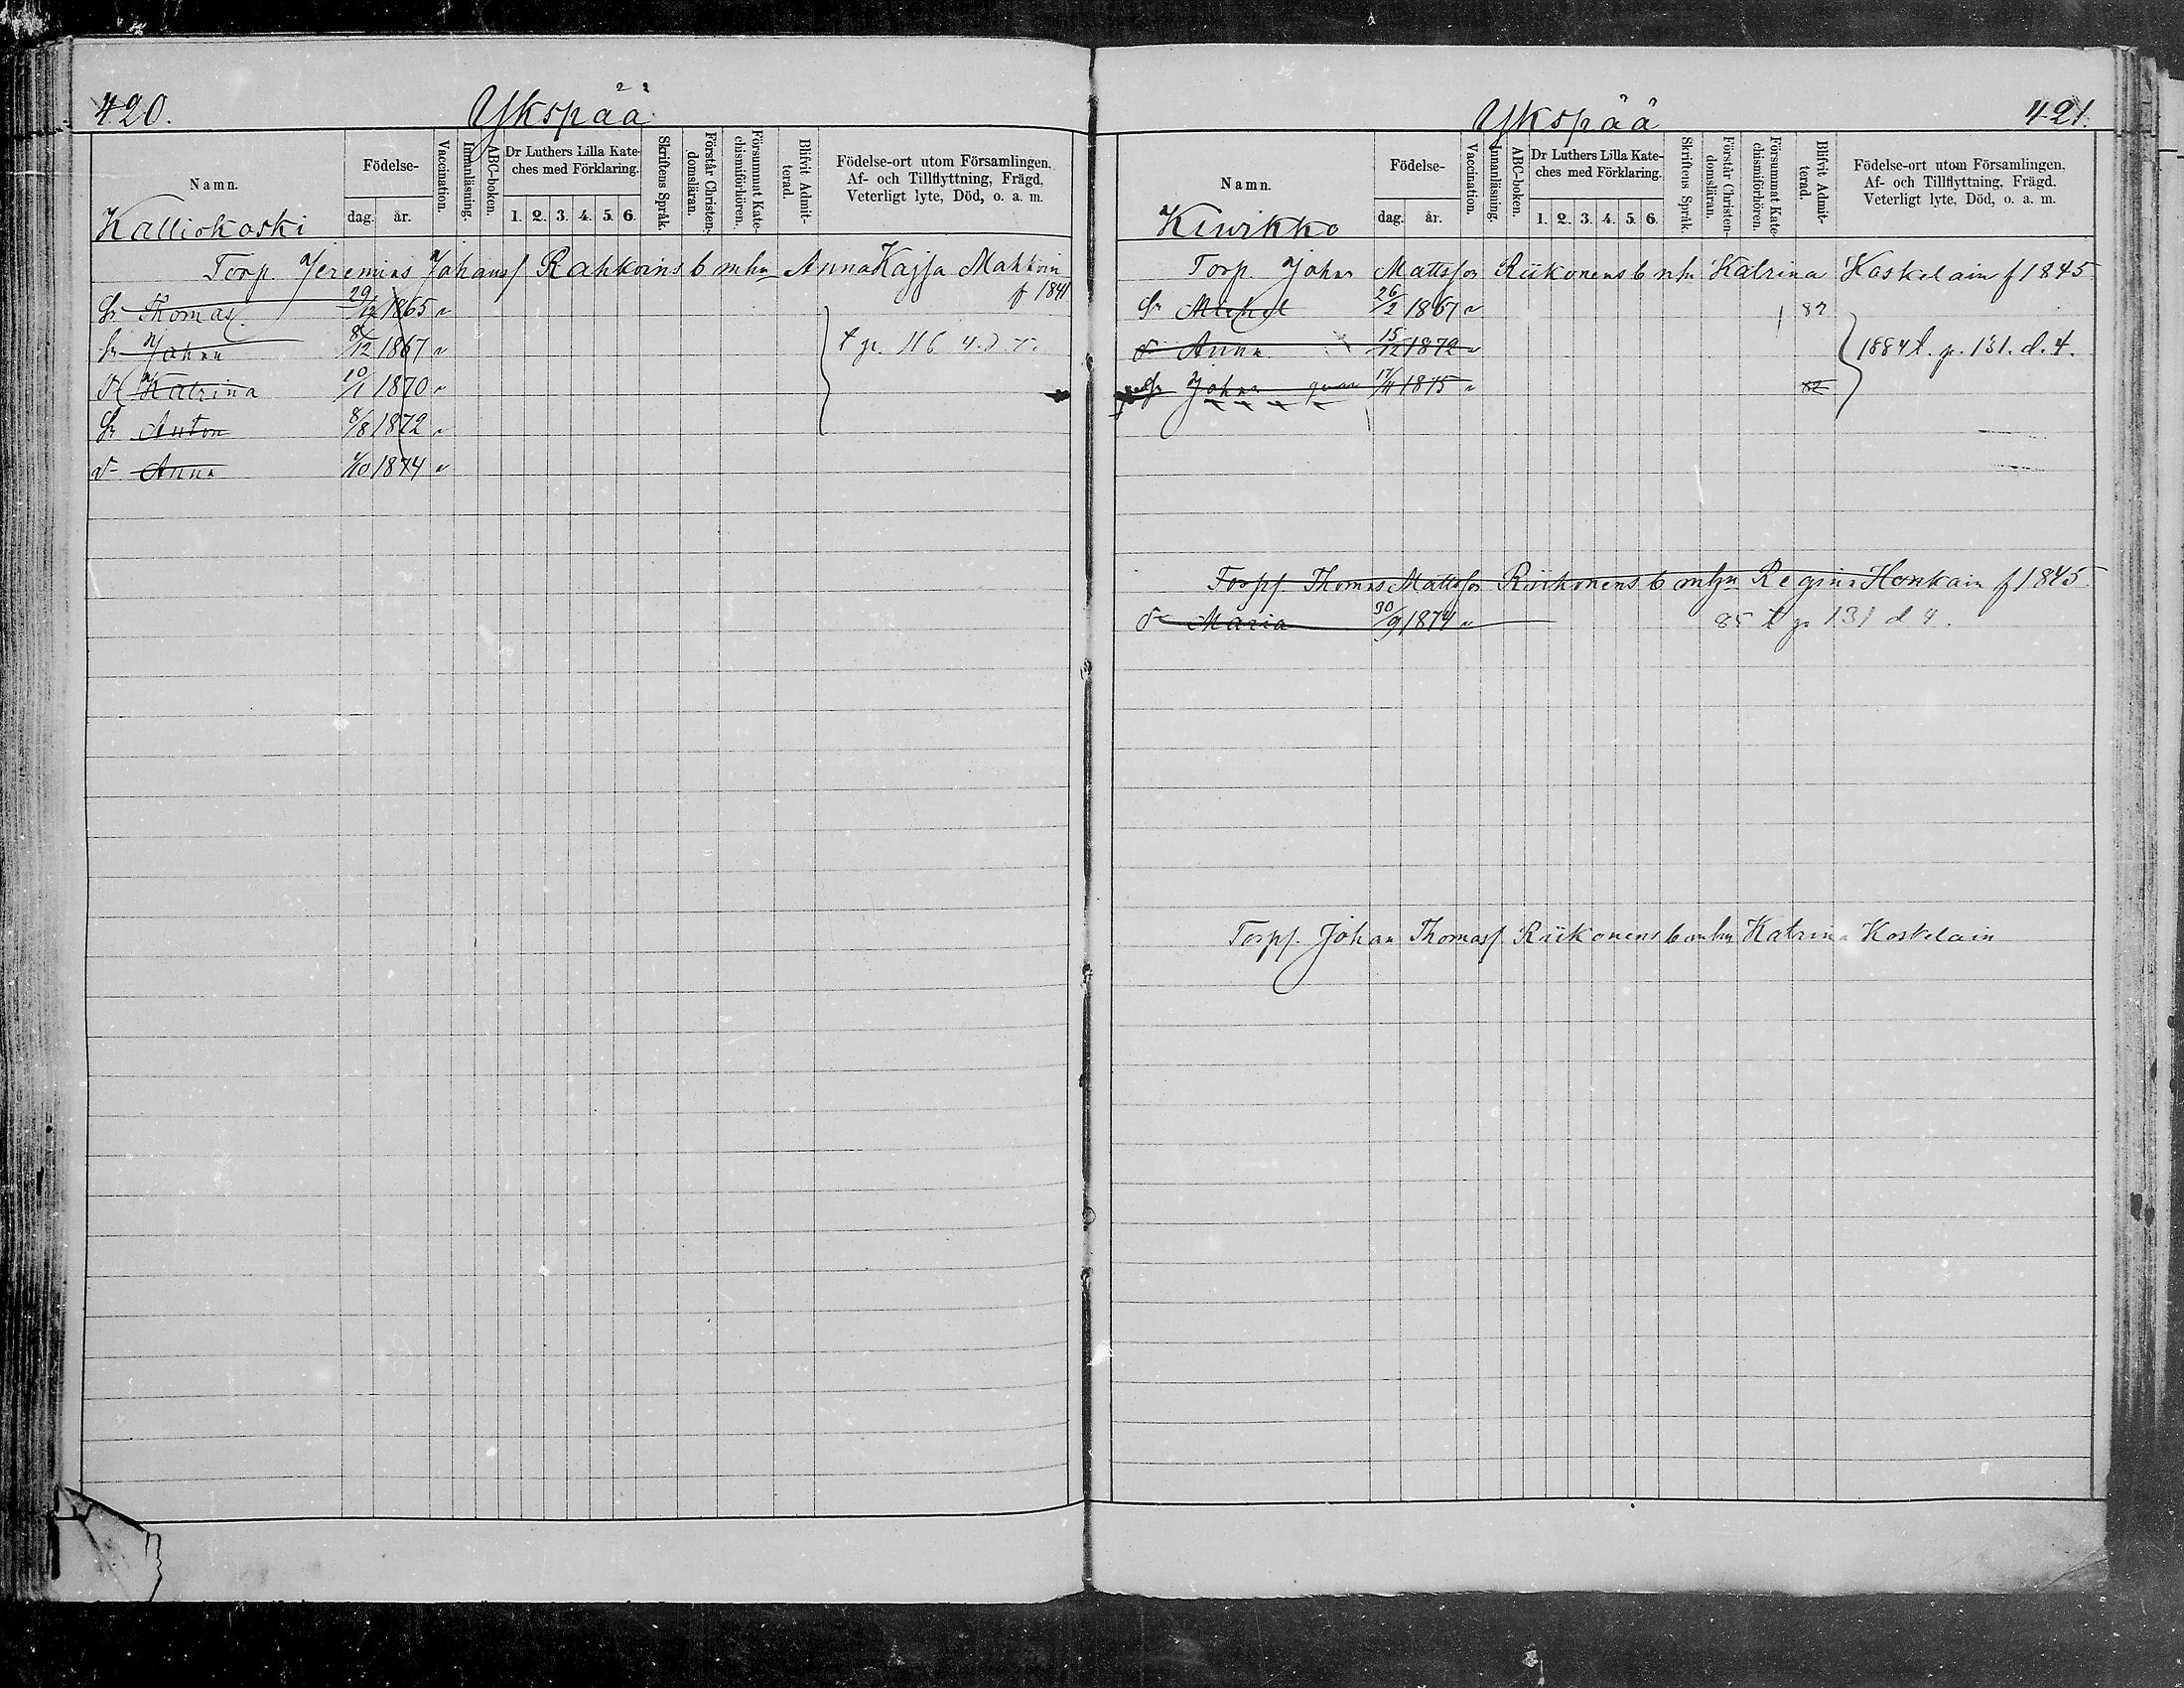 420.
Ykspää
Namn.
Födelse-
dag.
år.
Vaccination.
Innanläsning.
ABC-boken.
Dr Luthers Lilla Kate-
ches med Förklaring.
1. 2. 3. 4. 5. 6.
Skriftens Språk.
Förstår Christen-
domsläran.
Försummat Kate-
chismiförhören.
Blifvit Admit-
terad.
Födelse-ort utom Församlingen.
Af- och Tillflyttning, Frägd,
Veterligt lyte, Död, o. a. m.
Kalliokoski
Torp. Jeremias Johanss Rahkoins b mhu Anna Kajsa Mahkoin
f 1841
Sr Thomas 29/12 1865 v
Sr Johan 8/12 1867 v
t p. 116
d Katrina 10/1 1870 v
Sr Anton 8/8 1872 v
d Anna 1/10 1874 v
Ykspää
421.
Namn.
Födelse-
dag.
år.
Vaccination.
Innanläsning.
ABC-boken.
Dr Luthers Lilla Kate-
ches med Förklaring.
1. 2. 3. 4. 5. 6.
Skriftens Språk.
Förstår Christen-
domsläran.
Försummat Kate-
chismiförhören.
Blifvit Admit-
terad.
Födelse-ort utom Församlingen,
Af- och Tillflyttning, Frägd.
Veterligt lyte, Död, o. a. m.
Kiwikko
Torp. Johan Mattsson Riikonens b mhu Katrina Koskelain f 1845
Sr Michel 26/2 1867 v 82
d Anna 15/12 1872 v
1884 t. p. 131. d. 4.
Sr Johan 17/11 1875 v 82
Torpf. Thomas Mattsson Riikonens b mhu Regina Honkain f 1845
d Maria 30/9 1874 v 85 t p 131 d 4.
Torpf. Johan Thomass Riikonens b mhu Katrina Koskelain